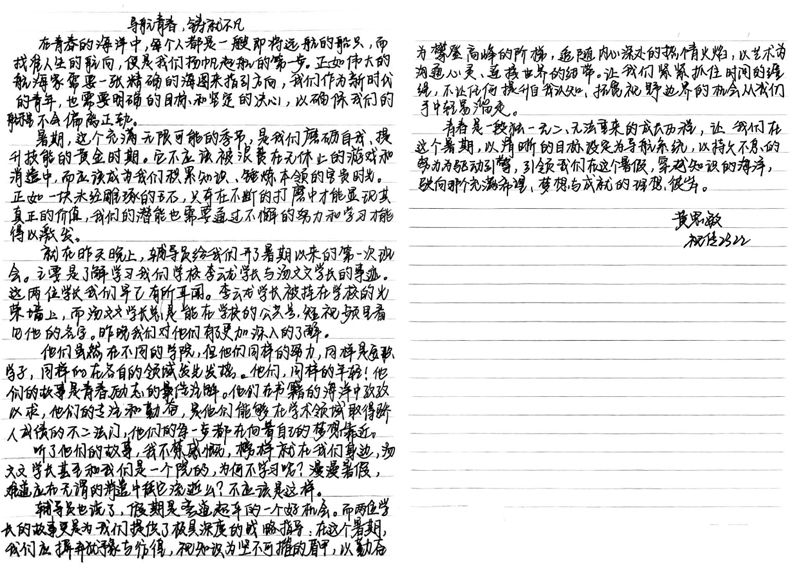 导航青春，铸就不凡
在青春的海洋中，每个人都是一艘即将远航的船只，而
找准人生的航向，便是我们扬帆起航的第一步。正如伟大的
航海家需要一张精确的海图来指引方向，我们作为新时代
的青年，也需要明确的目标和坚定的决心，以确保我们的
航程不会偏离正轨。
暑期，这个充满无限可能的季节，是我们磨砺自我、提
升技能的黄金时期。它不应该被浪费在无休止的游戏和
消遣中，而应该成为我们积累知识、锤炼本领的宝贵时光。
正如一块未经雕琢的玉石，只有在不断的打磨中才能显现其
真正的价值，我们的潜能也需要通过不懈的努力和学习才能
得以激发。
就在昨天晚上，辅导员给我们开了暑期以来的第一次班
会。主要是了解学习我们学校李云龙学长与汤文文学长的事迹。
这两位学长我们早已有所耳闻。李云龙学长被挂在学校的光
荣墙上，而汤文文学长总是能在学校的公众号，短视频里看
见他的名字。昨晚我们对他们有更加深入的了解。
他们虽然在不同的学院，但他们同样的努力，同样是莘莘
学子，同样的在各自的领域发光发热。他们，同样的年轻！他
们的故事是青春励志的最佳注解。他们在书籍的海洋中孜孜
以求，他们的专注和勤奋，是他们能够在学术领域取得骄
人成绩的不二法门，他们的每一步都在向着自己的梦想靠近。
听了他们的故事，我不禁感慨，榜样就在我们身边，汤
文文学长甚至和我们是一个院的，为何不学习呢？漫漫暑假，
难道应在无谓的消遣中任它流逝么？不应该是这样。
辅导员也说了，假期是弯道超车的一个好机会。而两位学
长的故事更是为我们提供了极具深度的战略指导：在这个暑期，
我们应摒弃犹豫与彷徨，视知识为坚不可摧的盾甲，以勤奋
为攀登高峰的阶梯，追随内心深处的热情火焰，以艺术为
沟通心灵、连接世界的纽带。让我们紧紧抓住时间的缰
绳，不让任何提升自我认知、拓展视野边界的机会从我们
手中轻易溜走。
青春是一段独一无二、无法重来的成长历程，让我们在
这个暑期，以清晰的目标设定为导航系统，以持久不息的
努力为驱动引擎，引领我们在这个暑假，穿越知识的海洋，
驶向那个充满希望、梦想与成就的理想彼岸。
黄思敏
视传2322